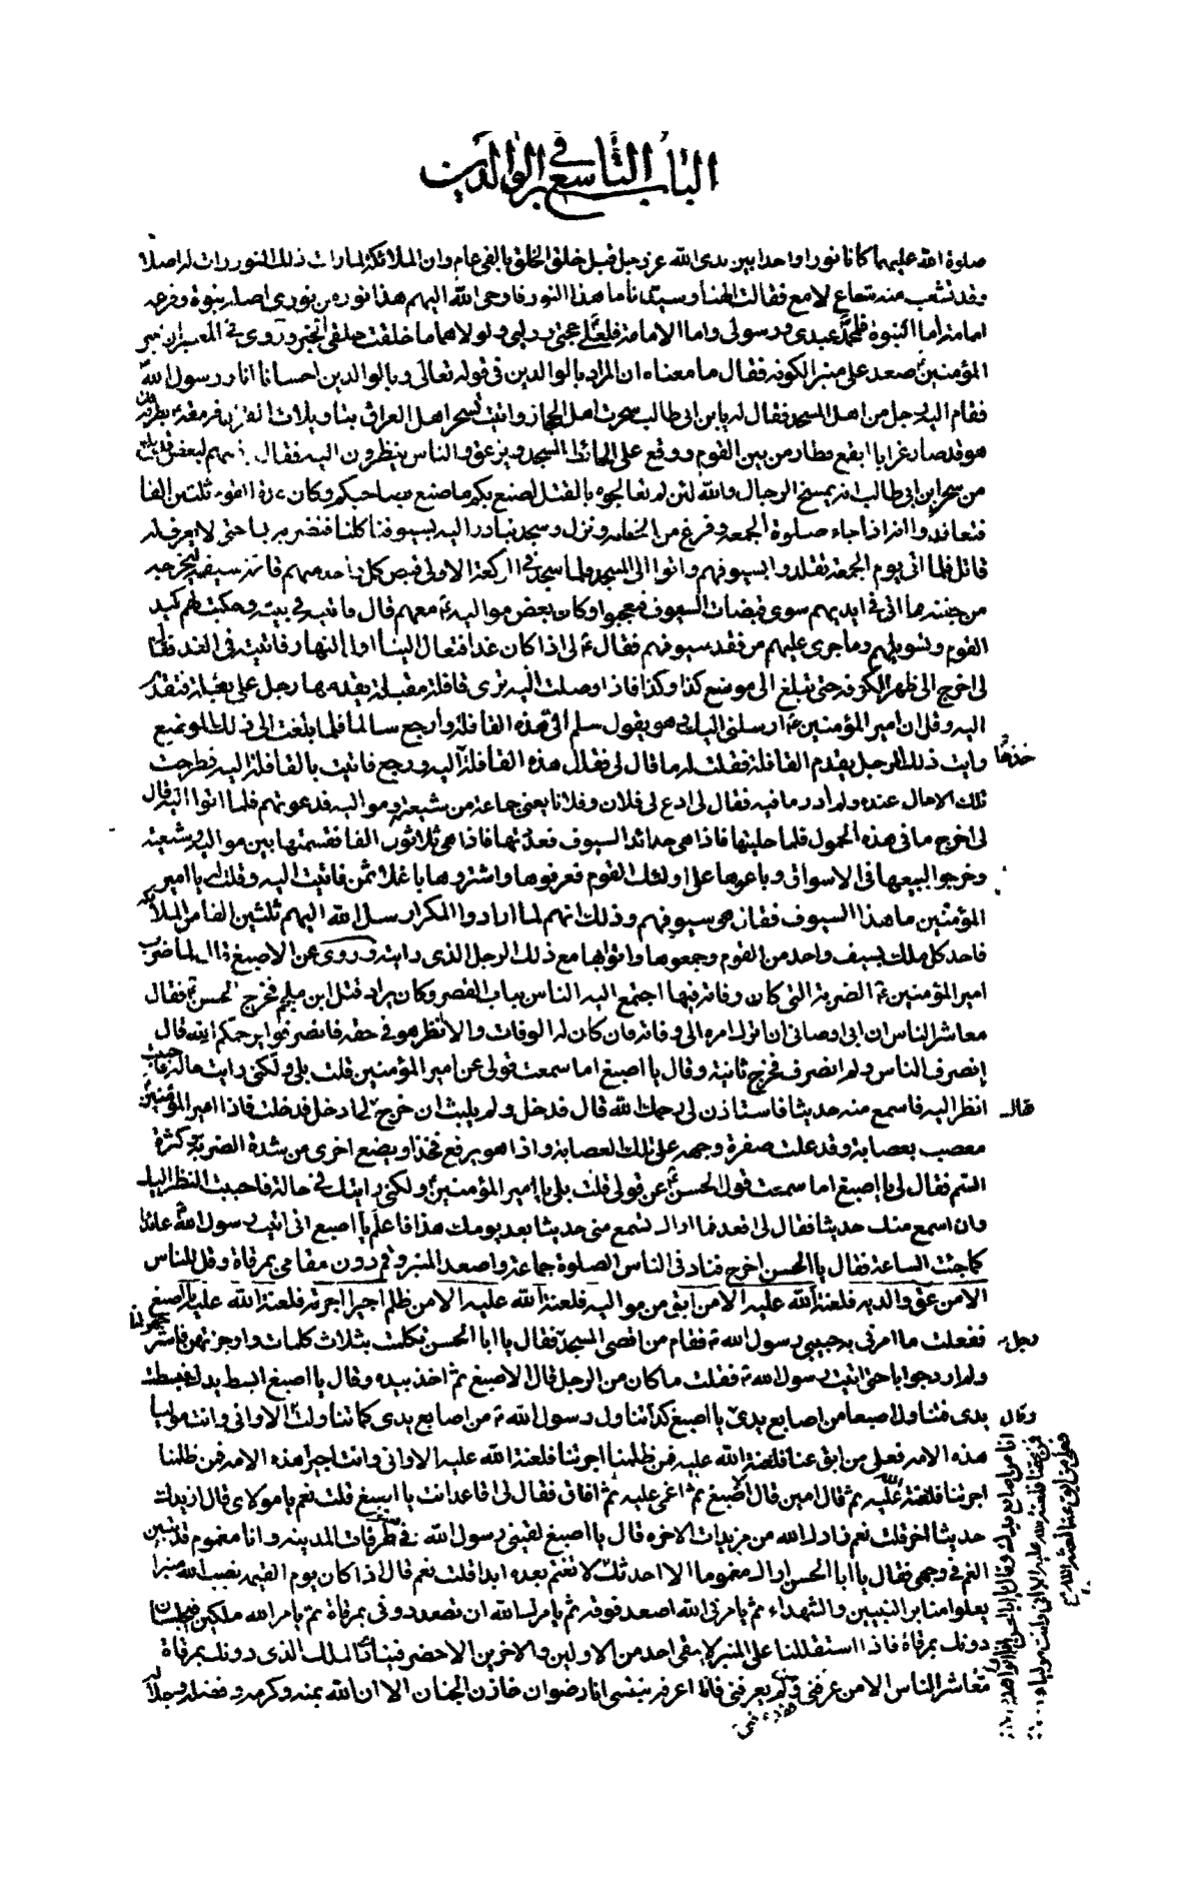 الباب التاسع في بر الوالدين
صلوة الله عليهما كانا نورا واحدا بين يدى الله عز وجل قبل خلق الخلق بالفى عام وان الملائكة لما رات ذلك النور رات له اصلا
وقد تشعب منه شعاع لامع فقالت الهنا وسيدنا ما هذا النور فاوحى الله اليهم هذا نوره من نورى اصله نبوة وفرعه
امامة اما النبوة فلمحمد عبدى ورسولى واما الامامة فلعلى حجتى ووليى ولولاهما ما خلقت خلقى الخبر وروى في
المؤمنين صعد على منبر الكوفه فقال ما معناه ان المراد بالوالدين فى قوله تعالى وبالوالدين احسانا انا ورسول الله
فقام اليه رجل من اهل المسجد فقال له يا بن ابى طالب سحرت اهل الحجاز وانت تسحر اهل العراق بتاويلات القران فرمقه بطرفه
هو قد صار غرابا ابقع فطار من بين القوم ووقع على الحائط المسجد ويزعق والناس ينظرون اليه فقال لبعض
من سحر ابن ابى طالب انه يمسخ الرجال والله لئن لم تعالجوه بالقتل لصنع بكم ما صنع بصاحبكم وكان ثلثين الفا
فتعاقدوا انه اذا جاء صلوة الجمعه وفرغ من الخطبه ونزل وسجد نبادر اليه بسيوفنا كلنا فنضربه بها حتى لا يعرف له
قاتل فلما اتى يوم الجمعة تقلدوا بسيوفهم واتوا الى المسجد فلما سجد فى الركعة الاولى قبض كل واحد منهم قائمة سيفه ليخرجه
من جفنه فما اتى فى ايديهم سوى قبضات السيوف فعجبوا وكان بعض مواليه معهم قال فاتيته فى بيته وحكيت لهم كيد
القوم وتسويلهم وما جرى عليهم من فقد سيوفهم فقال لى اذا كان غدا فتعال الينا اول النهار فاتيته فى الغد فقال
لى اخرج الى ظهر الكوفه حتى تبلغ الى موضع كذا وكذا فاذا وصلت اليه ترى قافلة مقبلة يقدمها رجل على بغلة فتقدم
اليه وقل ان امير المؤمنين ارسلنى اليك هو يقول سلم الى هذه القافلة وارجع سالما فلما بلغت الى ذلك الموضع
رايت ذلك الرجل يقدم القافلة فقلت له ما قال لى فقال هذه القافلة اليه ورجع فاتيت بالقافلة اليه فطرحت
خذها
تلك الاحمال عنده ولم ادر ما فيه فقال لى ادع لى فلان وفلانا يعنى جماعة من شيعته ومواليه فدعوتهم فلما اتوا اليه قال
لى اخرج ما فى هذه الحمول فلما حليتها فاذا هى حدائد السيوف فعدتها فاذا هى ثلاثون الفا فقسمتها بين مواليه وشيعته
وخرجوا لبيعها فى الاسواق وباعوها على اولئك القوم فعرفوها واشتروها باغلا ثمن فاتيت اليه وقلت يا امير
المؤمنين ما هذا السيوف فقال هى سيوفهم وذلك انهم لما ارادوا المكر ارسل الله اليهم ثلثين الفا من الملائكة
فاخذ كل ملك بسيف واحد من القوم وجمعوها واتوا بها مع ذلك الرجل الذى رايته وروى عن الاصبغ قال لما ضرب
امير المؤمنين الضربة التى كان وفاته فيها اجتمع اليه الناس بباب القصر وكان يراد قتل ابن ملجم فخرج الحسن فقال
معاشر الناس ان ابى اوصانى ان اترك امره الى وفاته فان كان له الوفات والا نظر هو فى حقه فانصرفوا يرحمكم الله قال
انصرف الناس ولم انصرف فخرج ثانية وقال يا اصبغ اما سمعت قولى عن امير المؤمنين قلت بلى ولكنى رايت حاله فاحببت
انظر اليه فاسمع منه حديثا فاستاذن لى رحمك الله قال فدخل ولم يلبث ان خرج لى ادخل فدخلت فاذا امير المؤمنين
قال
معصب بعصابة وقد علت صفرة وجهه على تلك العصابة واذا هو يرفع فخذا ويضع اخرى من شدة الضربة وكثرة
السم فقال لى يا اصبغ اما سمعت قول الحسن عن قولى قلت بلى يا امير المؤمنين ولكنى رايتك فى حالة فاحببت النظر اليك
وان اسمع منك حديثا فقال لى اقعد فما اراك تسمع منى حديثا بعد يومك هذا فاعلم يا اصبغ انى اتيت رسول الله عائدا
كما جئت الساعة فقال يا ابا الحسن اخرج فناد فى الناس الصلوة جماعة واصعد المنبر وقم دون مقامى بمرقاة وقل للناس
الا من عق والديه فلعنة الله عليه الا من ابق من مواليه فلعنة الله عليه الا من ظلم اجيرا اجرته فلعنة الله عليه يا اصبغ
ففعلت ما امرنى به حبيبى رسول الله فقام من اقصى المسجد فقال يا ابا الحسن تكلمت بثلاث كلمات واوجزتهن فاشرحهن لنا
رجل
ولم ارد جوابا حتى اتيت رسول الله فقلت ما كان من الرجل قال الاصبغ ثم اخذ بيده وقال يا اصبغ ابسط يدك فبسطت
يدى فتناول اصبعا من اصابع يدى يا اصبغ كذا تناول رسول الله من اصابع يدى كما تناولت الا وانى وانت موليا
هذه الامه فعلى من ابق عنا فلعنة الله عليه فمن ظلمنا اجرتنا فلعنة الله عليه الا وانى وانت اجير هذه الامه فمن ظلمنا
اجرتنا فلعنة الله عليه ثم قال امين قال الاصبغ ثم اغمى عليه ثم افاق فقال لى اقاعد انت يا اصبغ قلت نعم يا مولاى قال ازيدك
حديثا اخر قلت نعم زادك الله من مزيدات الاخره قال يا اصبغ لقينى رسول الله فى طرقات المدينه وانا مغموم قد تبين
الغم فى وجهى فقال يا ابا الحسن اراك مغموما الا احدثك لا تغتم بعده ابدا قلت نعم قال اذا كان يوم القيمه نصب الله منبرا
يعلوا منابر النبيين والشهداء ثم يامرنى الله اصعد فوقه ثم يامرك الله ان تصعد دونى بمرقاة ثم يامر الله ملكين فيجلسان
دونك بمرقاة فاذا استقللنا على المنبر لا يبقى احد من الاولين والاخرين الا حضر فينادى الملك الذى دونك بمرقاة
معاشر الناس الا من عرفنى فقد عرفنى ومن لم يعرفنى فانا اعرفه بنفسى انا رضوان خازن الجنان الا ان الله بمنه وكرمه وفضله وجلاله
وقال